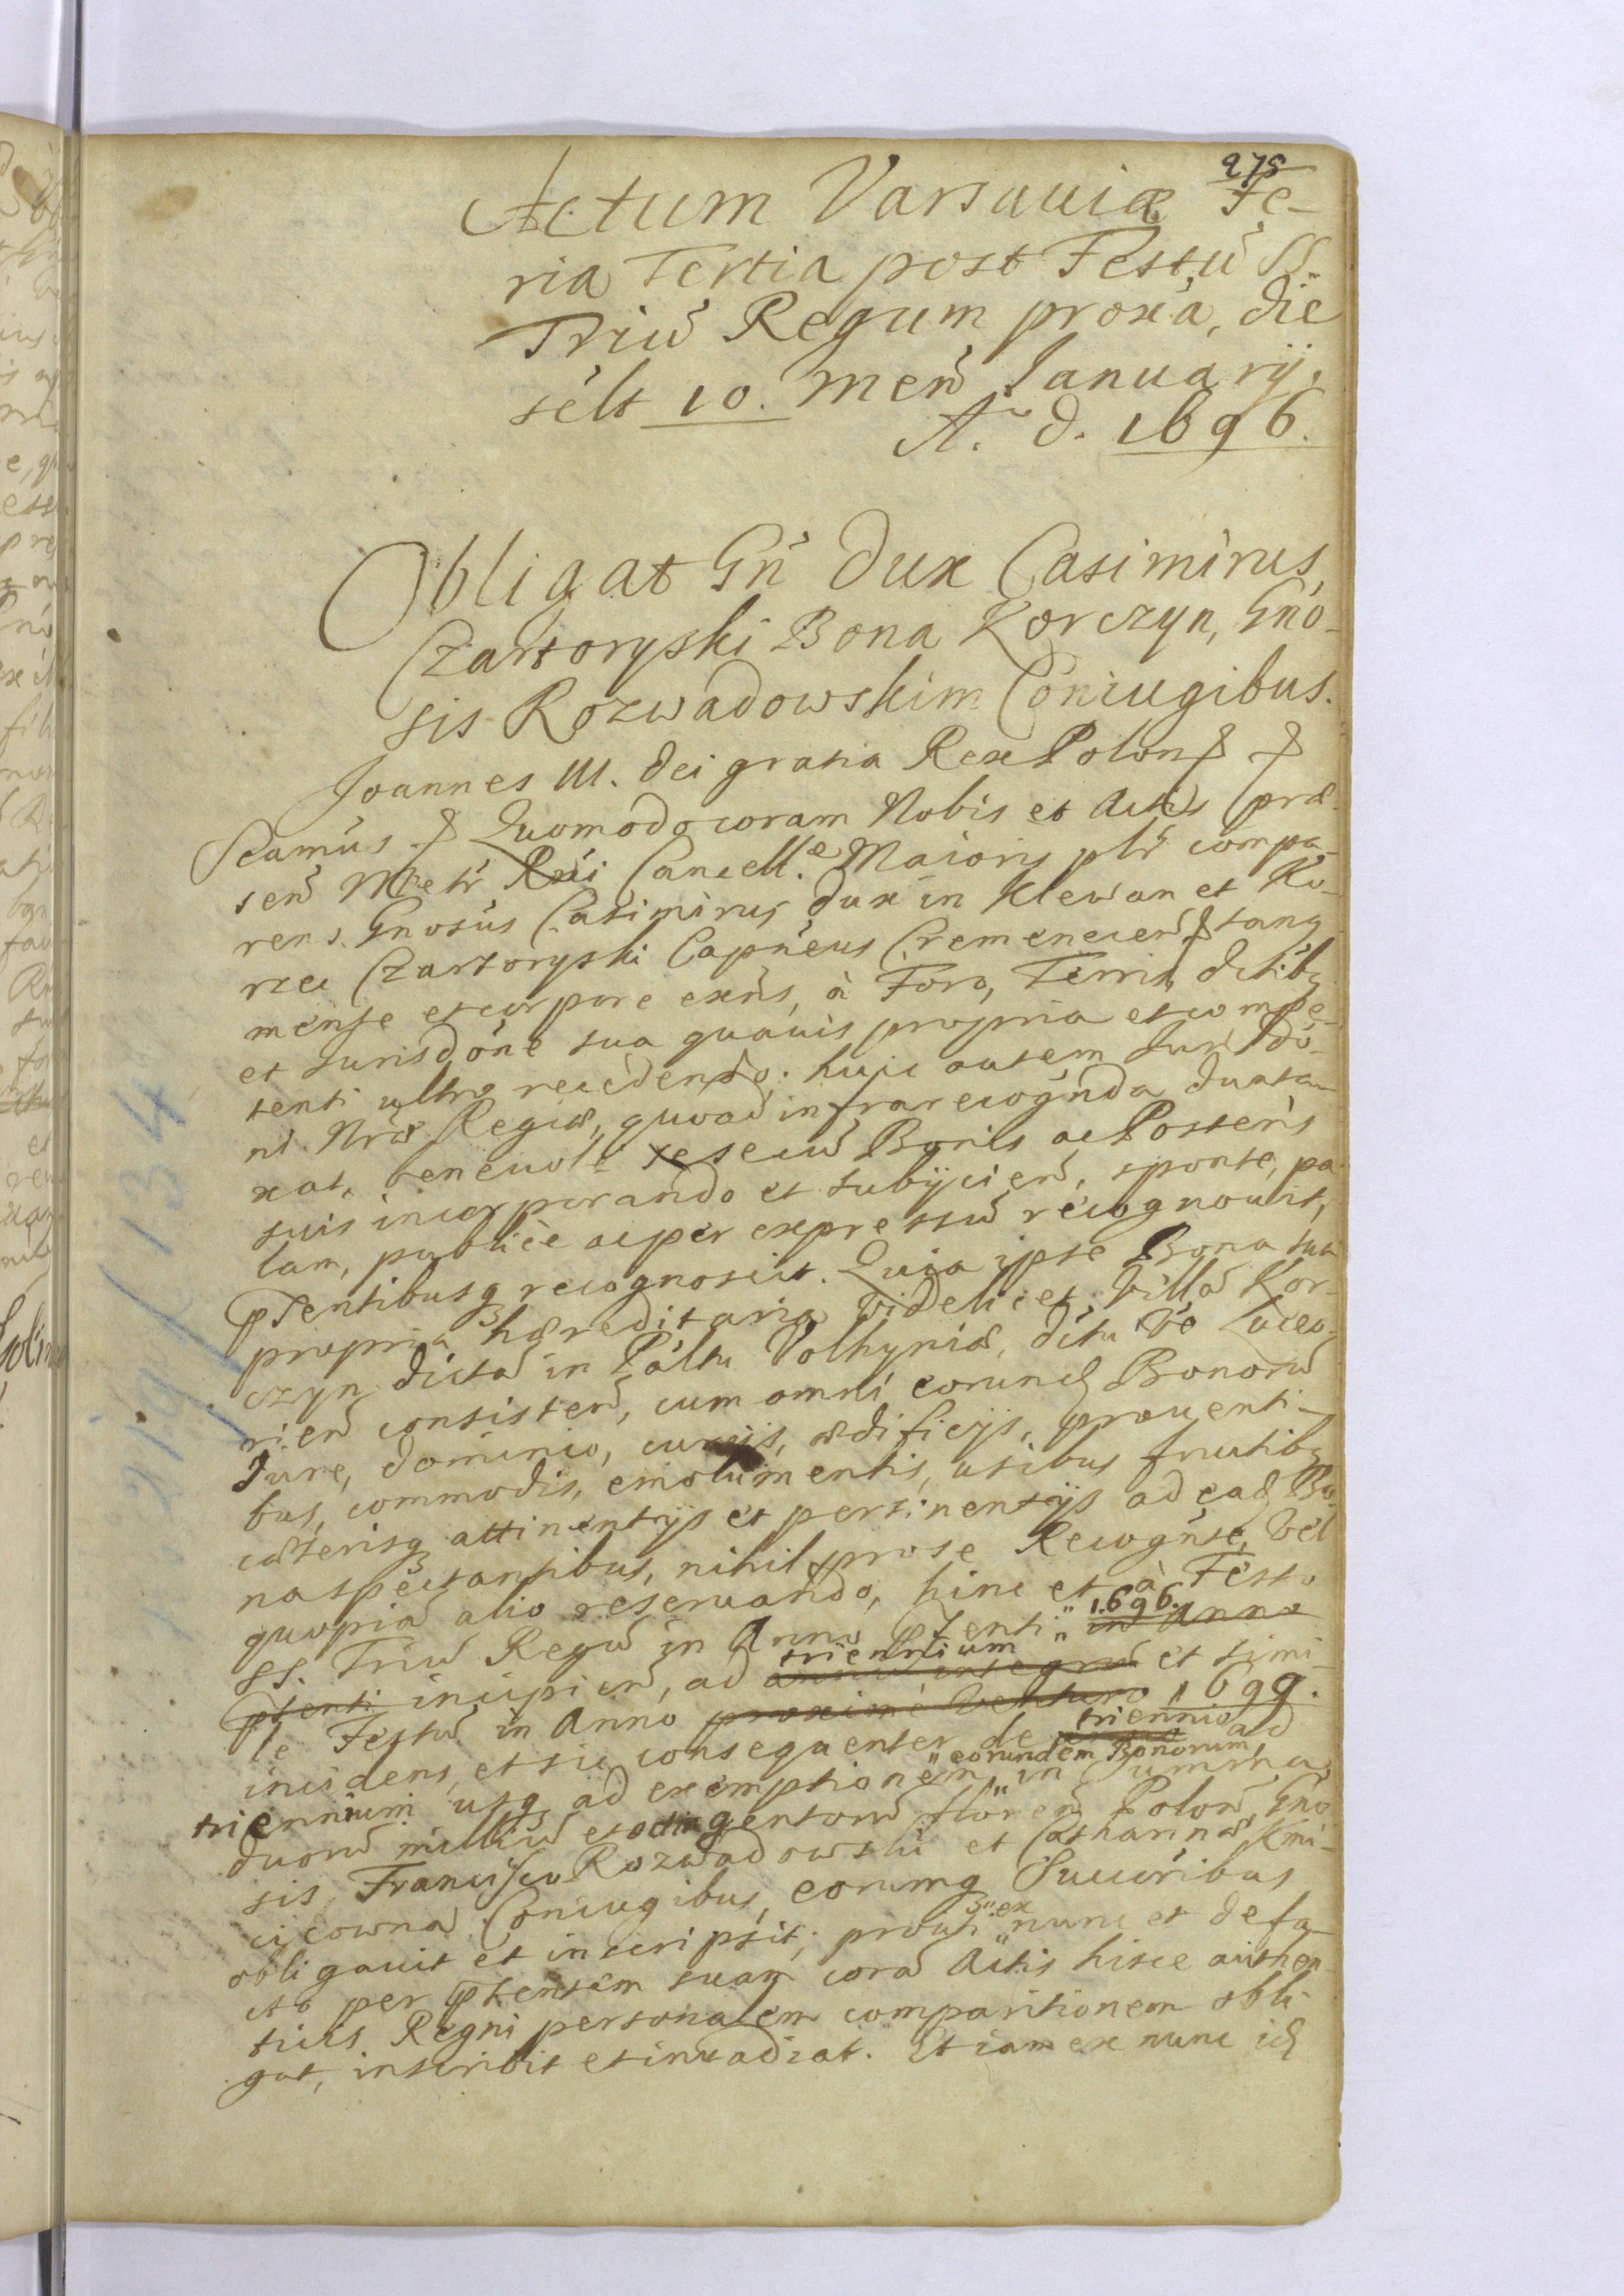 275
Actum Varsauiæ Fe-
ria Tertia post Festũ SS.
Triũ Regum proxa, die
sclt 10. Menͥ Januarÿ.
A. D. 1696.
Obligat Gn̄ Dux Casimirus
Czartoryski Bona Korczyn, Gn̄o-
sis Rozwadowskim Coniugibus.
Joannes III. Dei gratia Rex Polon
Seamus. Quomodo coram Nobis et Actis præ-
sen Metr Rni Cancell.æ Maioris plr compa-
rens. Gnosus Casimirus Dux in Klewan et Ko-
rzec Czartoryski Capneus Cremenecen sanq
mente et corpore exñs, à Foro, Terris, dctibꝫ
et Jurisdõne sua quauis propria et compe-
tenti ultro recedendo. huic autem Jurisdo-
ni Nræ Regiæ, quoad infra recognda dunta-
xat, beneuole se secũ Bonis ac Posteris
suis incorporando et subÿcien, sponte, pa-
lam, publicè ac per expressũ recognouit,
pñtentibusq recognoscit. Quia ipse Bona sua
propria hæreditaria videlicet Villã Kor-
czyn dictã in Paltu Volhyniæ, dctu vo Luceo-
rien consisten, cum omni eorund Bonorũ
Jure, dominio, curijs, ædificijs, prouenti-
bus, commodis, emolumentis, usibus fructibꝫ
cæterisq attinentijs et pertinentijs ad ead Bo-
na spectantibus, nihil pro se Recognte, vel
quopiã alio reseruando, hinc et à Festo
SS. Triũ Regũ in Anno pñtenti 1696. in Anno
pñtenti incipien, ad triennium annũ integrũ et simi-
le Festũ in Anno proximè venturo 1699.
incidens, et sic consequenter de triennio ad
triennium usq ad exemptionem eorundem Bonorum, in Summa
duorũ milliũ et octingentorũ floren Polon, Gno-
sis Francisco Rozwadowski et Catharinæ Kmi-
cicowna Coniugibus, eorumq Succoribus
obligauit et inscripsit; prout ex nunc et de fa-
cto per pñtentem suam corã Actis hisce authen-
ticis Regni personalem comparitionem obli-
gat, inscribit et inuadiat. Et iam ex nunc id
219/134